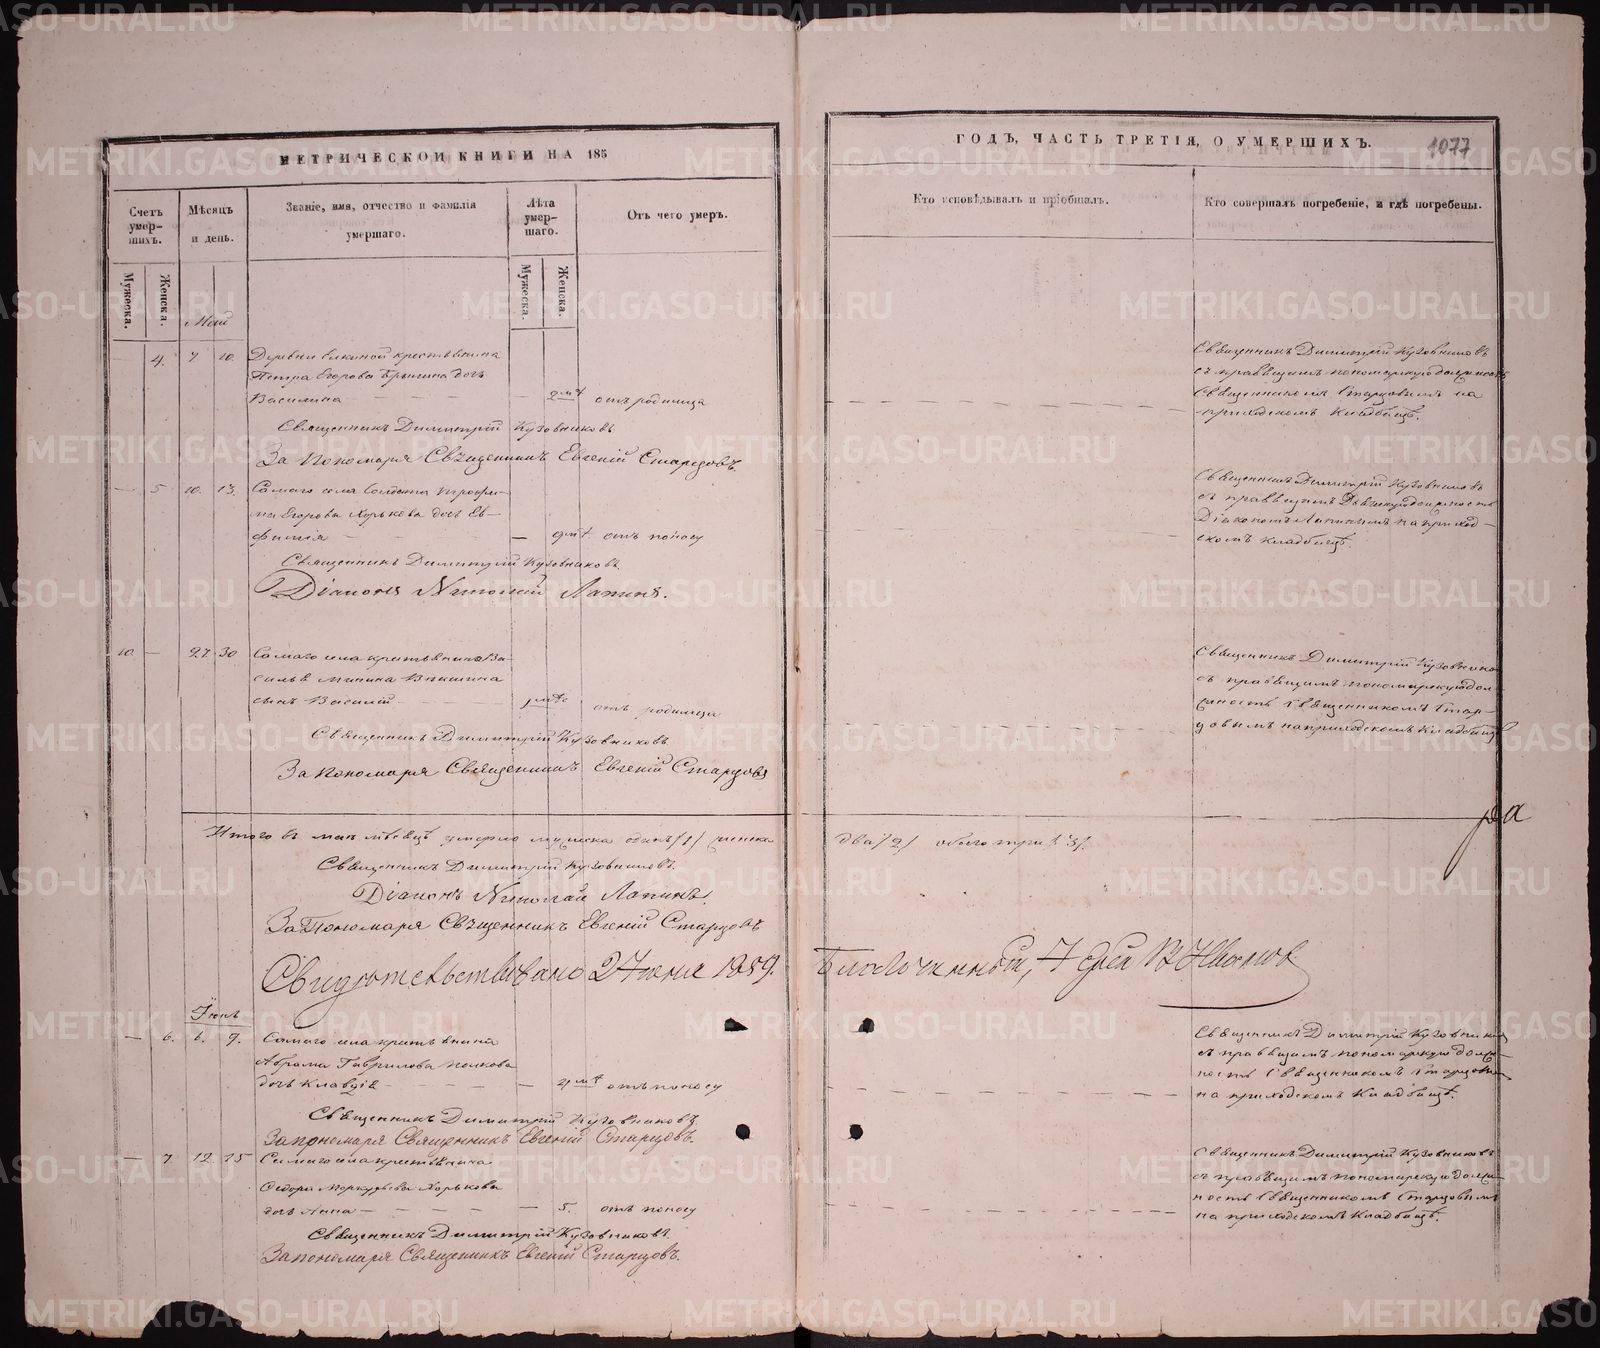 МЕТРИЧЕСКОЙ КНИГИ НА 185
ГОДЪ, ЧАСТЬ ТРЕТІЯ, О УМЕРШИХЪ.
1077
Счетъ умер-шихъ.
Мѣсяцъ и день.
Званіе, имя, отчество и фамилія умершаго.
Лѣта умер-шаго.
Отъ чего умеръ.
Кто исповѣдывалъ и пріобщалъ.
Кто совершалъ погребеніе, и гдѣ погребены.
Мужеска.
Женска.
Мужеска.
Женска.
Май
4. 7 10. Деревни Елкиной крестьянина
Петра Егорова дочь
Василиса
отъ родимца
Священникъ Димитрій Кузовниковъ
съ правящимъ пономарскую должность
Священникомъ Старцовымъ на
приходскомъ кладбищѣ.
Священникъ Димитрій Кузовниковъ
За пономаря Священникъ Евгеній Старцовъ.
5 10. 13. Самаго села Солдата Трофи-
ма Егорова Хорькова дочь Ев-
фимія
отъ поносу
Священникъ Димитрій Кузовниковъ
съ правящимъ должность
Діакономъ Лапинымъ на приход-
скомъ кладбищѣ.
Священникъ Димитрій Кузовниковъ.
Діаконъ Николай Лапинъ.
10. 27. 30 Самаго села крестьянина Ва-
силья Минина
сынъ Василій
отъ родимца
Священникъ Димитрій Кузовников
съ правящимъ пономарскую дол-
жность Священникомъ Стар-
цовымъ на приходскомъ кладбищѣ
Священникъ Димитрій Кузовниковъ
За пономаря Священникъ Евгеній Старцовъ
Итого въ маѣ мѣсяцѣ умерло мужеска одинъ /1/ женска
два /2/ обоего три /3/.
Священникъ Димитрій Кузовниковъ.
Діаконъ Николай Лапинъ.
За Пономаря Священникъ Евгеній Старцовъ
Свидѣтельствовано 2 Іюня 1859.
Благочинный, Іерей
Іюнь
6. 6. 9. Самаго села крестьянина
Аврама Гаврилова Попкова
дочь Клавдія
отъ поносу
Священникъ Димитрій Кузовников
съ правящимъ пономарскую долж-
ность Священникомъ Старцовы
на приходскомъ кладбищѣ.
Священникъ Димитрій Кузовниковъ
За пономаря Священникъ Евгеній Старцовъ.
7. 12. 15 Самаго села крестьянина
Федора Меркурьева Хорькова
дочь Анна 5. отъ поносу
Священникъ Димитрій Кузовниковъ
съ правящимъ пономарскую долж-
ность Священникомъ Старцовымъ
на приходскомъ кладбищѣ.
Священникъ Димитрій Кузовниковъ.
За пономаря Священникъ Евгеній Старцовъ.
METRIKI.GASO-URAL.RU